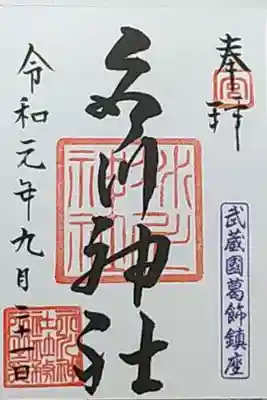 奉拝
武蔵國葛飾鎮座
氷川神社
令和元年九月二十一日